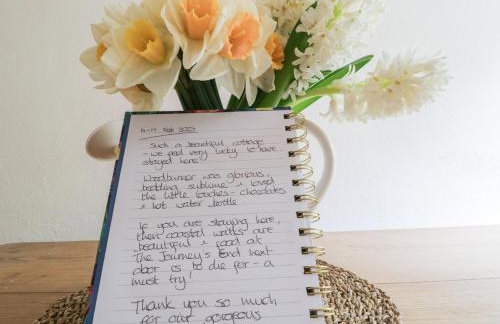 Feb 2023
Such a beautiful cottage
- we feel very lucky to have
stayed here.
Woodburner was glorious,
bedding sublime & loved
the little touches - chocolates
& hot water bottle
If you are staying here,
then coastal walks are
beautiful & food at
The Journey's End next
door is to die for - a
must try!
Thank you so much
for our gorgeous